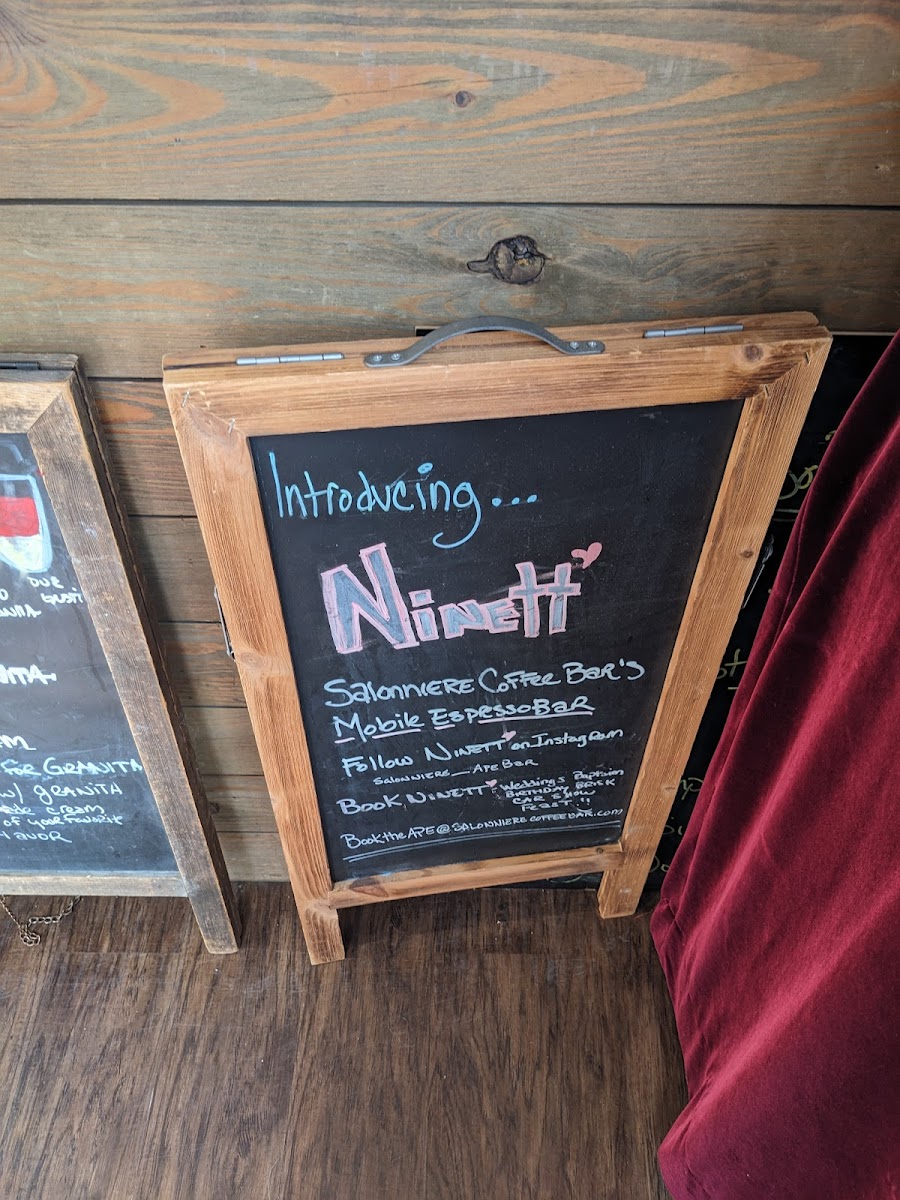 Introducing...
Ninett
Salonniere Coffee Bar's
Mobile Espresso Bar
Follow Ninett on Instagram
Salonniere_Ape Bar
Book Ninett: Weddings Baptism
Birthday Brisk
Car Show
Feast!!
BooktheApe@salonnierecoffeebar.com
For Granita
w/ Granita
cream
of your favorite